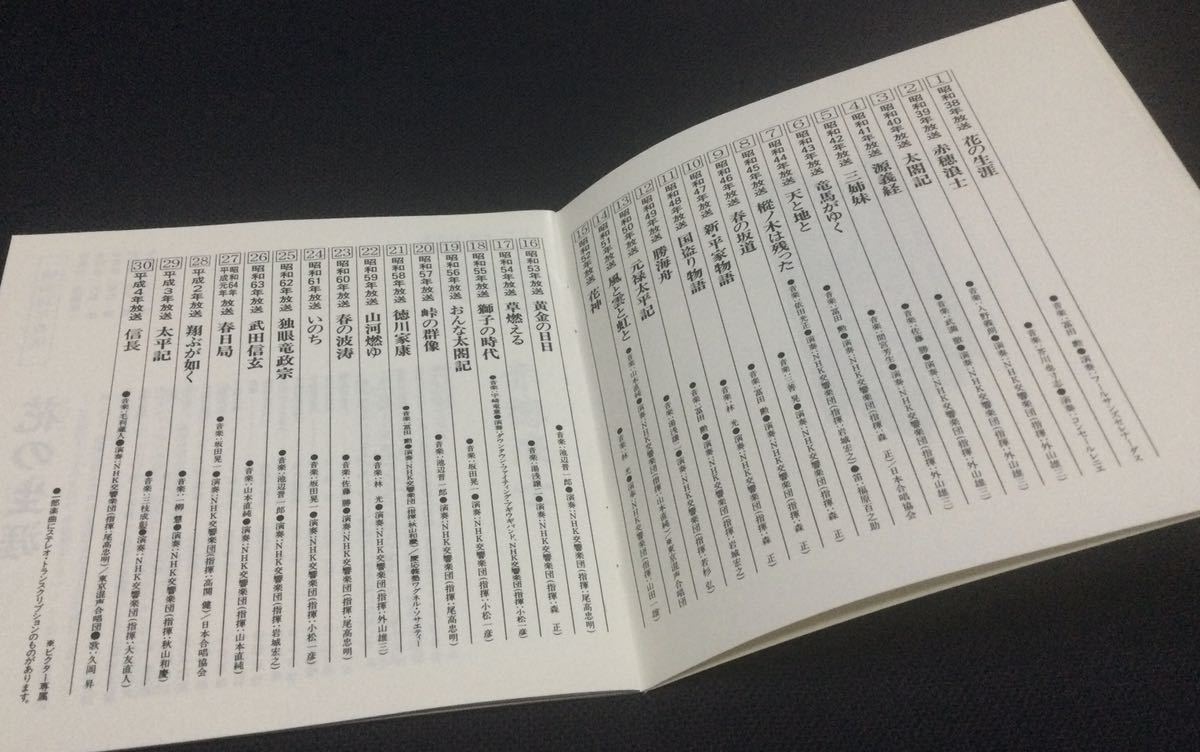 1 昭和38年放送 花の生涯 ●音楽:冨田 勲●演奏:フールサンズセレナーダス
2 昭和39年放送 赤穂浪士 ●音楽:芥川也寸志●演奏:コンセールレニエ
3 昭和40年放送 太閤記 ●音楽:入野義朗●演奏:NHK交響楽団(指揮:外山雄三)
4 昭和41年放送 源義経 ●音楽:武満 徹●演奏:NHK交響楽団(指揮:外山雄三)
5 昭和42年放送 三姉妹 ●音楽:佐藤 勝●演奏:NHK交響楽団(指揮:外山雄三)
6 昭和43年放送 竜馬がゆく ●音楽:間宮芳生●演奏:NHK交響楽団(指揮:森 正)/日本合唱協会
7 昭和44年放送 天と地と ●音楽:冨田 勲●演奏:NHK交響楽団(指揮:岩城宏之)●笛:福原百之助
8 昭和45年放送 樅ノ木は残った ●音楽:依田光正●演奏:NHK交響楽団(指揮:森 正)
9 昭和46年放送 春の坂道 ●音楽:三善 晃●演奏:NHK交響楽団(指揮:森 正)
10 昭和47年放送 新・平家物語 ●音楽:冨田 勲●演奏:NHK交響楽団(指揮:岩城宏之)
11 昭和48年放送 国盗り物語 ●音楽:林 光●演奏:NHK交響楽団(指揮:若杉 弘)
12 昭和49年放送 勝海舟 ●音楽:冨田 勲●演奏:NHK交響楽団
13 昭和50年放送 元禄太平記 ●音楽:湯浅譲二●演奏:NHK交響楽団
14 昭和51年放送 風と雲と虹と ●音楽:山本直純●演奏:NHK交響楽団(指揮:山本直純)/東京混声合唱団
15 昭和52年放送 花神 ●音楽:林 光●演奏:NHK交響楽団(指揮:山田一雄)
16 昭和53年放送 黄金の日日 ●音楽:池辺晋一郎●演奏:NHK交響楽団(指揮:尾高忠明)
17 昭和54年放送 草燃える ●音楽:湯浅譲二●演奏:NHK交響楽団(指揮:森 正)
18 昭和55年放送 獅子の時代 ●音楽:宇崎竜童●演奏:ダウンタウン・ファイティング・ブギウギバンド、NHK交響楽団(指揮:小松一彦)
19 昭和56年放送 おんな太閤記 ●音楽:坂田晃一●演奏:NHK交響楽団(指揮:小松一彦)
20 昭和57年放送 峠の群像 ●音楽:池辺晋一郎●演奏:NHK交響楽団(指揮:尾高忠明)
21 昭和58年放送 徳川家康 ●音楽:冨田 勲●演奏:NHK交響楽団(指揮:秋山和慶)/慶応義塾ワグネル・ソサエティー
22 昭和59年放送 山河燃ゆ ●音楽:林 光●演奏:NHK交響楽団(指揮:外山雄三)
23 昭和60年放送 春の波涛 ●音楽:佐藤 勝●演奏:NHK交響楽団(指揮:尾高忠明)
24 昭和61年放送 いのち ●音楽:坂田晃一●演奏:NHK交響楽団(指揮:小松一彦)
25 昭和62年放送 独眼竜政宗 ●音楽:池辺晋一郎●演奏:NHK交響楽団(指揮:岩城宏之)
26 昭和63年放送 武田信玄 ●音楽:山本直純●演奏:NHK交響楽団(指揮:山本直純)
27 昭和64年 平成元年 放送 春日局 ●音楽:坂田晃一●演奏:NHK交響楽団(指揮:高関 健)/日本合唱協会
28 平成2年放送 翔ぶが如く ●音楽:一柳 慧●演奏:NHK交響楽団(指揮:秋山和慶)
29 平成3年放送 太平記 ●音楽:三枝成彰●演奏:NHK交響楽団(指揮:大友直人)
30 平成4年放送 信長 ●音楽:毛利蔵人●演奏:NHK交響楽団(指揮:尾高忠明)/東京混声合唱団●歌:久岡 昇
●一部楽曲にステレオ・トランスクリプションのものがあります。
※ビクター専属